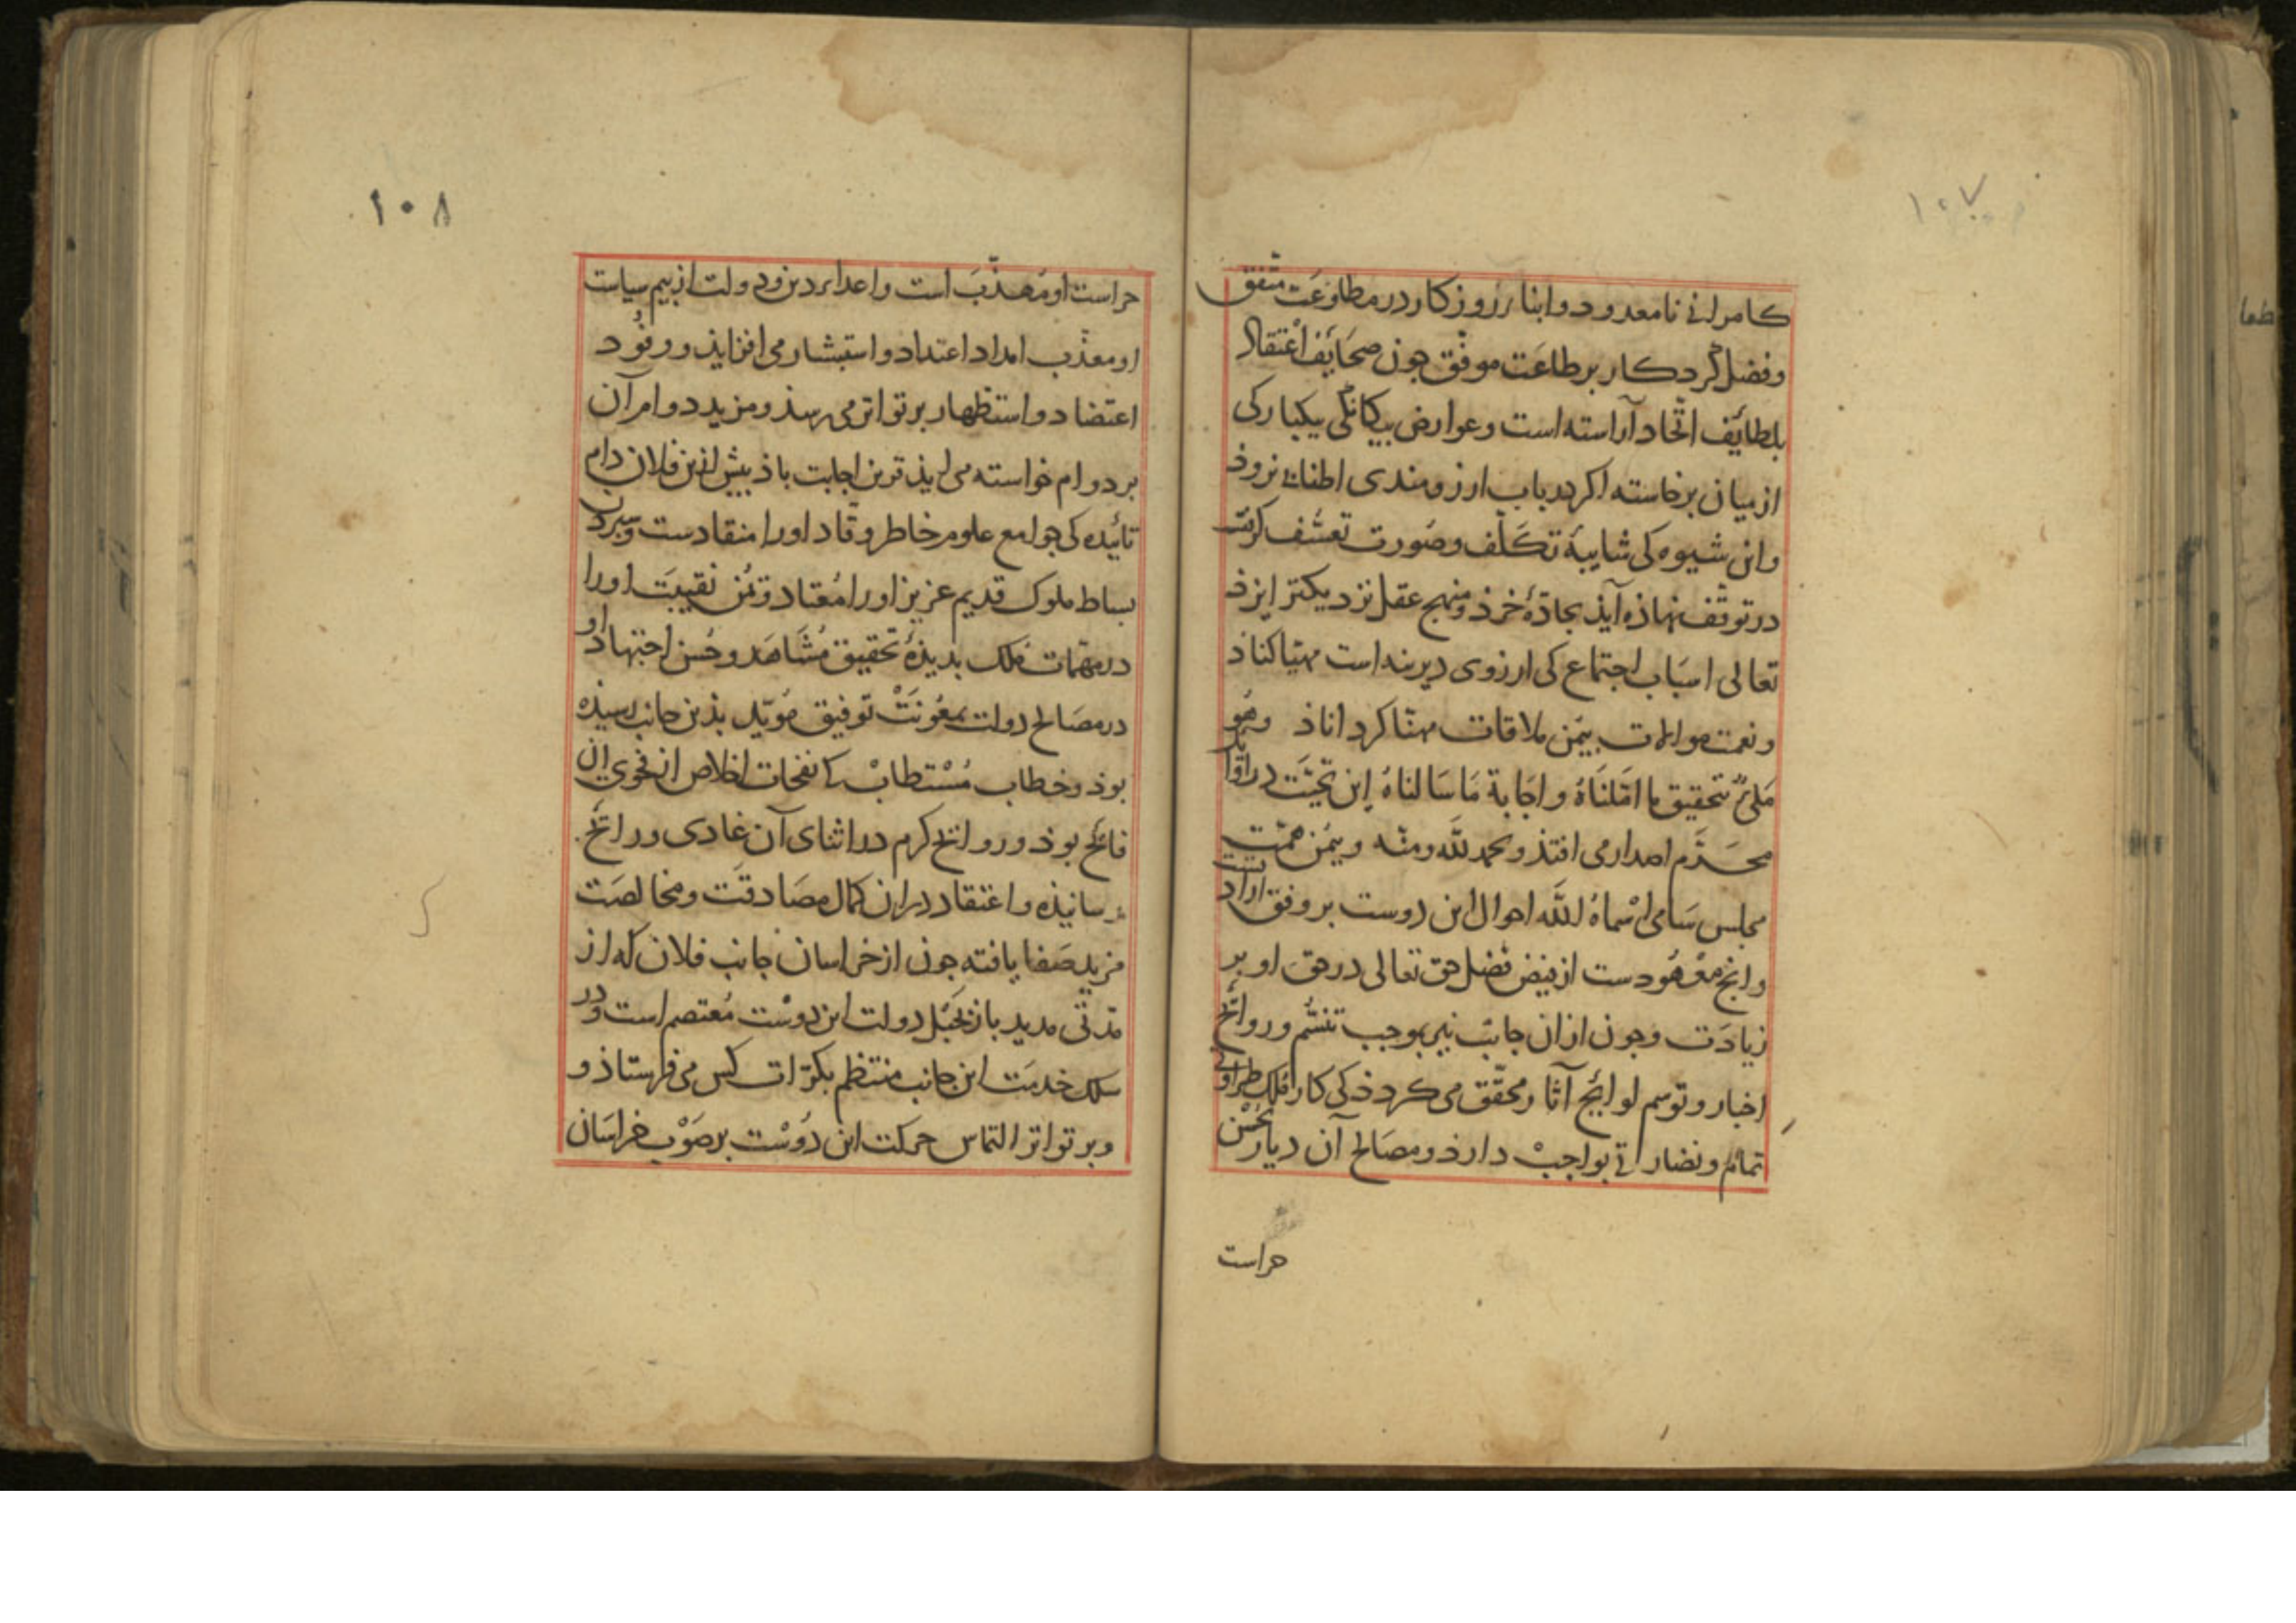 ١٠٧
كامرانی نامعدود و ابناء روزكار در مطاوعت متفق
و فضل كردكار بر طاعت موفق جون صحایف اعتقاد
بلطایف اتّحاد آراسته است و عوارض بیكانكی بیكباركی
از میان برخاسته اكر در باب ارزومندی اطنابی نروذ
و این شیوه كی شایبۀ تكلّف و صورت تعسّف كرفت
در توقّف نهاذه آیذ بجادّۀ خرذ و منهج عقل نزدیكتر ایزذ
تعالی اسباب اجتماع كی ارزوی دیرینه است مهیّا كناذ
و نعمت موالات بیمن ملاقات مهنّا كرداناذ وهو
ملیٌّ بتحقیق ما امّلناهُ و اجابة ما سالناهُ این تحیّت در اوایل
محرّم اصدار می افتذ و بحمد للّه و منّه و بیمن همّت
مجلس سامی اسماهُ اللّه احوال این دوست بر وفق ارادت
و انج معهودست از فیض فضل حق تعالی در حق او بر
زیادت و جون از ان جانب نیز بموجب تنسّم و روائح
اخبار و توسم لوائح آثار محقّق می كردذ كی كار ملك طراوتی
تمام و نضارتی بواجب دارذ و مصالح آن دیار بحسن
حراست
١٠٨
حراست او مهذّب است و اعداء دین و دولت از بیم سیاست
او معذّب امداد اعتداد و استبشار می افزایذ و وفود
اعتضاد و استظهار بر تواتر می رسذ و مزید دوام آن
بر دوام خواسته می ایذ قرین اجابت باذ بیش ازین فلان دام
تائیده كی جوامع علوم خاطر وقّاد اورا منقادست و سبردن
بساط ملوك قدیم عزیز اورا مُعتاد و یُمن نقیبت اورا
در مهمّات ملك بدیذۀ تحقیق مُشاهَد و حُسن اجتهاد او
در مصالح دولت بمعونت توفیق مُویّد بذین جانب رسیذه
بوذ و خطاب مُسْتطابْ كا نفحات اخلاص از فحوی ان
فائح بوذ و روائح كرم در اثنای آن غادی و رائح
رسانیذه و اعتقاد در ان كمال مصادقت و مخالصت
مزید صفا یافته جون از خراسان جانب فلان كه از
مدّتی مدید باز بحبل دولت این دوست مُعتصم است و در
سلك خدمت این جانب منتظم بكرّات كس می فرستاذ و
و بر تواتر التماس حركت این دوست بر صَوْب خراسان